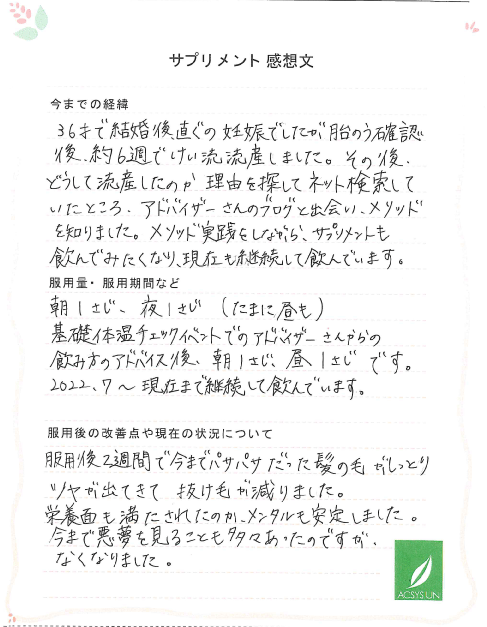 サプリメント 感想文
今までの経緯
36才で結婚後、直ぐの妊娠でしたが胎のう確認
後、約6週でけい流流産しました。その後、
どうして流産したのか理由を探してネット検索して
いたところ、アドバイザーさんのブログと出会い、メソッド
を知りました。メソッド実践をしながら、サプリメントも
飲んでみたくなり、現在も継続して飲んでいます。
服用量・服用期間など
朝1さじ、夜1さじ (たまに昼も)
基礎体温チェックイベントでのアドバイザーさんからの
飲み方のアドバイス後、朝1さじ、昼1さじです。
2022.7〜現在まで継続して飲んでいます。
服用後の改善点や現在の状況について
服用後2週間で今までパサパサだった髪の毛がしっとり
ツヤが出てきて 抜け毛が減りました。
栄養面も満たされたのか、メンタルも安定しました。
今まで悪夢を見ることも多々あったのですが、
なくなりました。
ACSYSUN